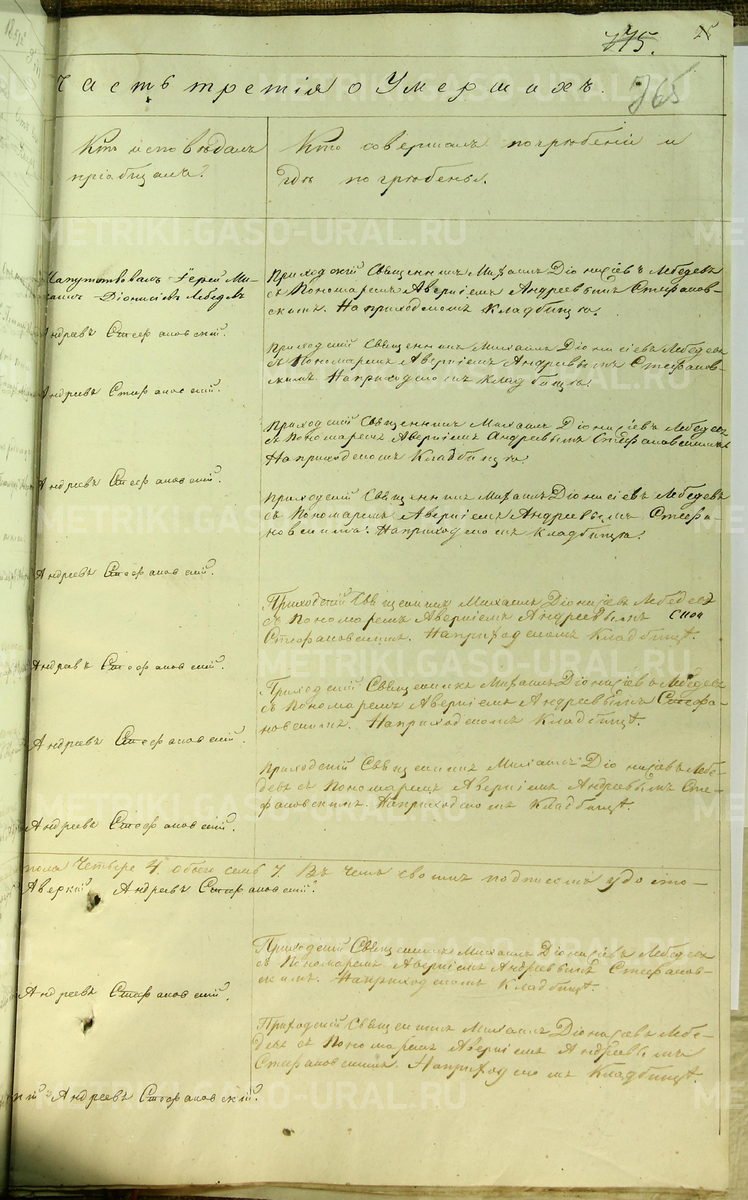 775.
265
Часть третія о Умершихъ.
Кто исповѣдалъ
пріобщалъ?
Кто совершалъ погрюбеніи и
гдѣ погрюбены.
METRIKI.GASO-URAL.RU
Напутствовалъ Іерей Ми-
хаилъ Діонисіевъ Лебедевъ
Приходскій Священникъ Михаилъ Діонисіевъ Лебедевъ
съ Пономаремъ Аверкіемъ Андреевымъ Стефановс-
кимъ. На приходскомъ Кладбищѣ.
Андреевъ Стефановскій.
Приходскій Священникъ Михаилъ Діонисіевъ Лебедевъ
съ Пономаремъ Аверкіемъ Андреевымъ Стефанов-
скимъ. На приходскомъ Кладбищѣ.
Андреевъ Стефановскій.
Приходскій Священникъ Михаилъ Діонисіевъ Лебедевъ
съ Пономаремъ Аверкіемъ Андреевымъ Стефановскимъ
На приходскомъ Кладбищѣ.
Андреевъ Стефановскій.
Приходскій Священникъ Михаилъ Діонисіевъ Лебедевъ
съ Пономаремъ Аверкіемъ Андреевымъ Стефа-
новскимъ. На приходскомъ Кладбищѣ.
Андреевъ Стефановскій.
Приходскій Священникъ Михаилъ Діонисіевъ Лебедевъ
съ Пономаремъ Аверкіемъ Андреевымъ
Стефановскимъ. На приходскомъ Кладбищѣ.
Андреевъ Стефановскій.
Приходскій Священникъ Михаилъ Діонисіевъ Лебедевъ
съ Пономаремъ Аверкіемъ Андреевымъ Стефа-
новскимъ. На приходскомъ Кладбищѣ.
Андреевъ Стефановскій.
Приходскій Священникъ Михаилъ Діонисіевъ Лебе-
девъ съ Пономаремъ Аверкіемъ Андреевымъ Сте-
фановскимъ На приходскомъ Кладбищѣ.
Андреевъ Стефановскій.
пола Четыре 4. обоего семь 7. Въ чемъ своимъ подписомъ удосто-
Аверкій Андреевъ Стефановскій.
Приходскій Священникъ Михаилъ Діонисіевъ Лебедевъ
съ Пономаремъ Аверкіемъ Андреевымъ Стефанов-
скимъ. На приходскомъ Кладбищѣ.
Андреевъ Стефановскій.
Приходскій Священникъ Михаилъ Діонисіевъ Лебе-
девъ съ Пономаремъ Аверкіемъ Андреевымъ
Стефановскимъ. На приходскомъ Кладбищѣ.
Андреевъ Стефановскій.